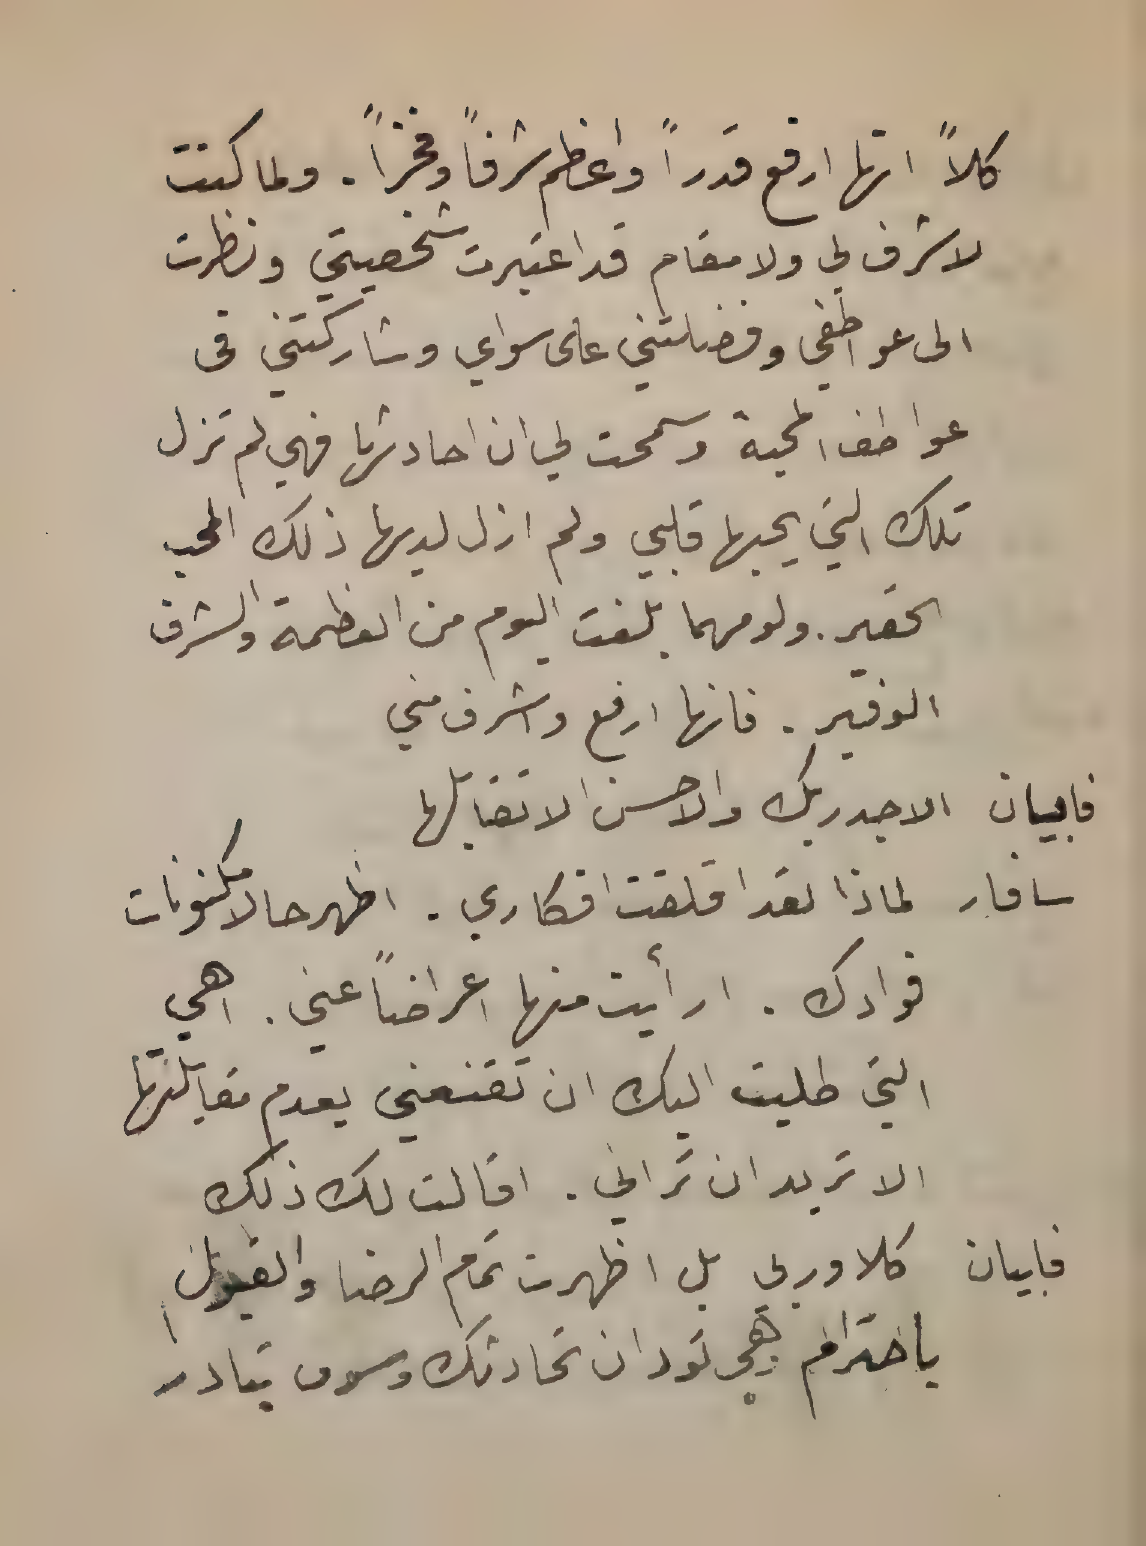 كلاً انها ارفع قدراً واعظم شرفاً وفخراً . ولما كنت
لا شرف لي ولا مقام قد اعتبرت شخصيتي ونظرت
الى عواطفي وفضلتني على سواي وشاركتني في
عواطف المحبة وسمحت لي ان احادثها فهي لم تزل
تلك التي يحبها قلبي ولم ازل لديها ذلك المحب
الحقير . ولو مهما بلغت اليوم من العظمة والشرف
الوفير . فانها ارفع واشرف مني
فابيان الاجدر بك والاحسن الا تقابلها
سافار لماذا لقد اقلقت افكاري . اظهر حالا مكنونات
فوادك . ارأيت منها اعراضاً عني . اهي
التي طلبت اليك ان تقنعني بعدم مقابلتها
الا تريد ان تراني . اقالت لك ذلك
فابيان كلا وربي بل اظهرت تمام الرضا والقبول
باحترام وهي تود ان تحادثك وسوف تبادر